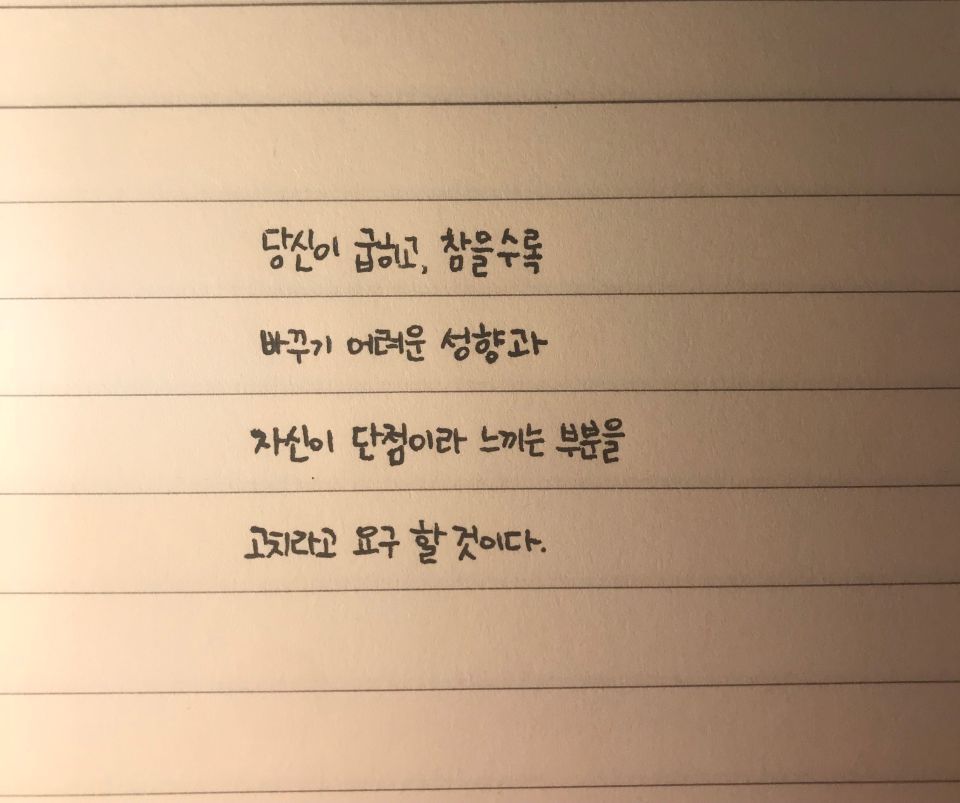 당신이 굽히고, 참을수록
바꾸기 어려운 성향과
자신이 단점이라 느끼는 부분을
고치라고 요구 할 것이다.